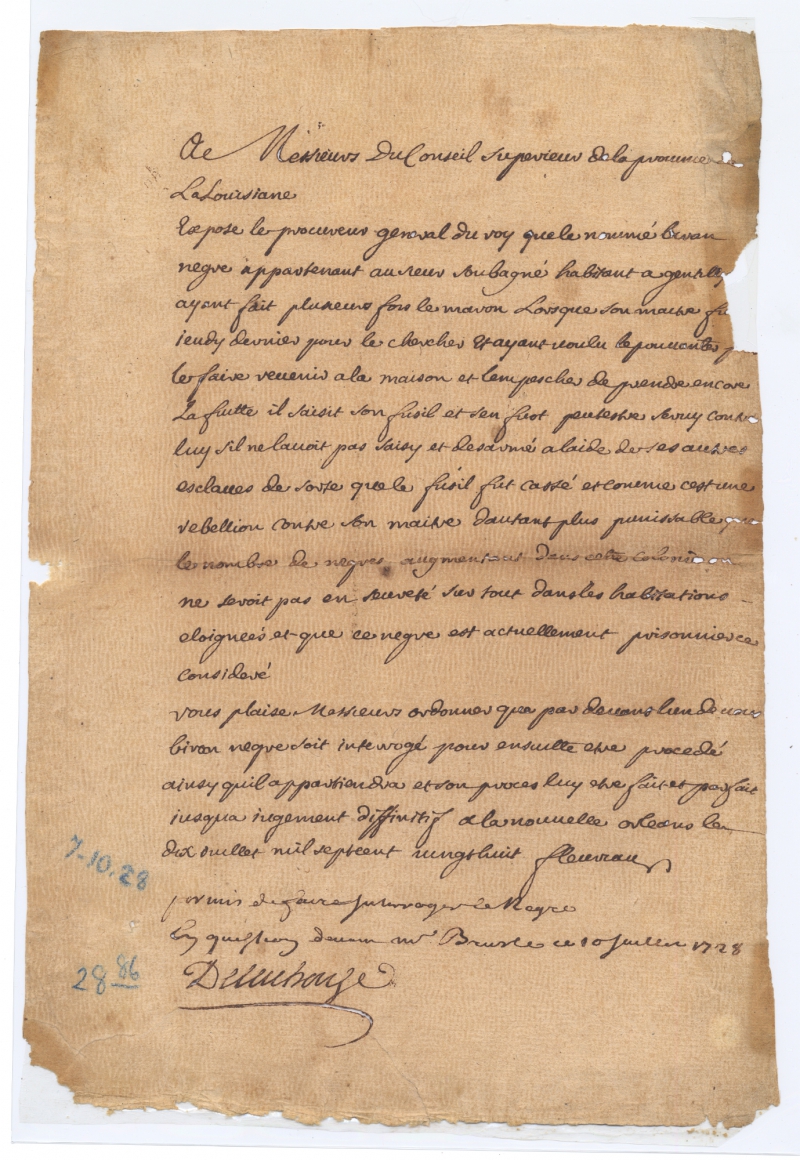 A Messieurs Du Conseil Superieur de la province de
La Louisiane
Expose le procureur general du roy que le nommé biron
negre appartenant au sieur Soubagné habitant a gentilly
ayant fait plusieurs fois le maron Lorsque son maitre fu
ieudy dernier pour le chercher Et ayant voulu le
le faire revenir a la maison et lempescher de prendre encore
La fuitte il saisit son fusil et sen fust peutestre servy contre
luy sil ne lauoit pas saisy et desarmé a laide de ses autres
esclaues de sorte que le fusil fut cassé et comme cest une
rebellion contre son maitre dautant plus punissable que
le nombre de negres augmentant dans cette colonie on
ne seroit pas en seureté sur tout dans les habitations
eloignées et que ce negre est actuellement prisonnier ce
consideré
vous plaise Messieurs ordonner que par deuant lun de vous
biron negre soit interrogé pour ensuitte etre procedé
ainsy quil appartiendra et son proces luy etre fait et parfait
iusqua iugement diffinitif a la nouvelle orleans le
dix Juillet mil septcent vingthuit fleuriau
permis de faire Interroger le Negre
En question deuant mr Bruslé ce 10 Juillet 1728
Delachaise
7-10.28
28 86